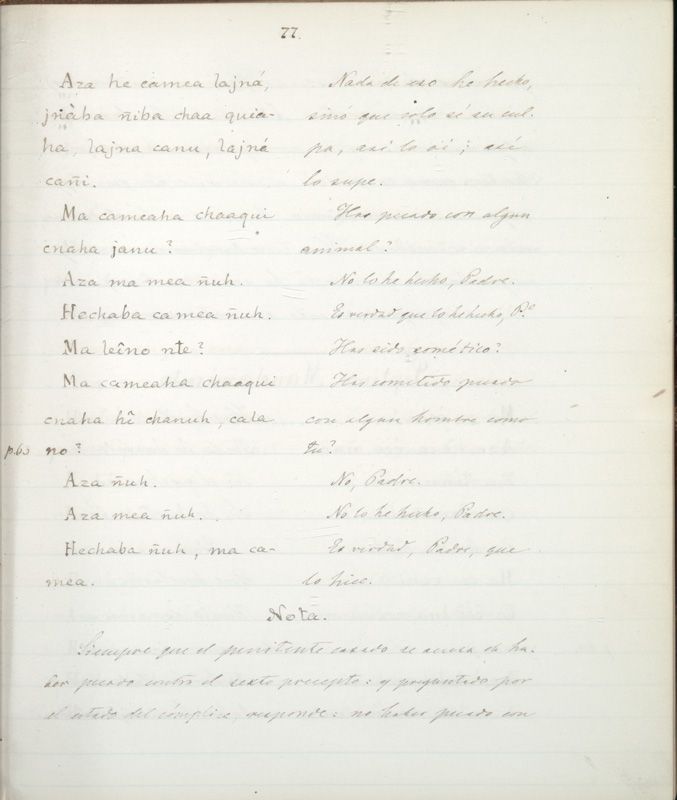 77.
Aza he camea lajná,
jnàba ñiba chaa quia-
ha, lajna canu, lajná
cañi.
Ma cameaha chaaqui
cnaha janu?
Aza ma mea ñuh.
Hechaba camea ñuh.
Ma leîno nte?
Ma cameaha chaaqui
cnaha hî chanuh, cala
no?
Aza ñuh.
Aza mea ñuh.
Hechaba ñuh, ma ca-
mea.
Nada de eso he hecho,
sinó que solo sé su cul-
pa, así lo oí; así
lo supe.
Has pecado con algun
animal?
No lo he hecho, Padre.
Es verdad que lo he hecho, P.e
Has sido somético?
Has cometido pecado
con algun hombre como
tu?
No, Padre.
No lo he hecho, Padre.
Es verdad, Padre, que
lo hice.
Nota.
Siempre que el penitente casado se acusa de ha-
ber pecado contra el sexto precepto: y preguntado por
el estado del cómplice, responde: no haber pecado con